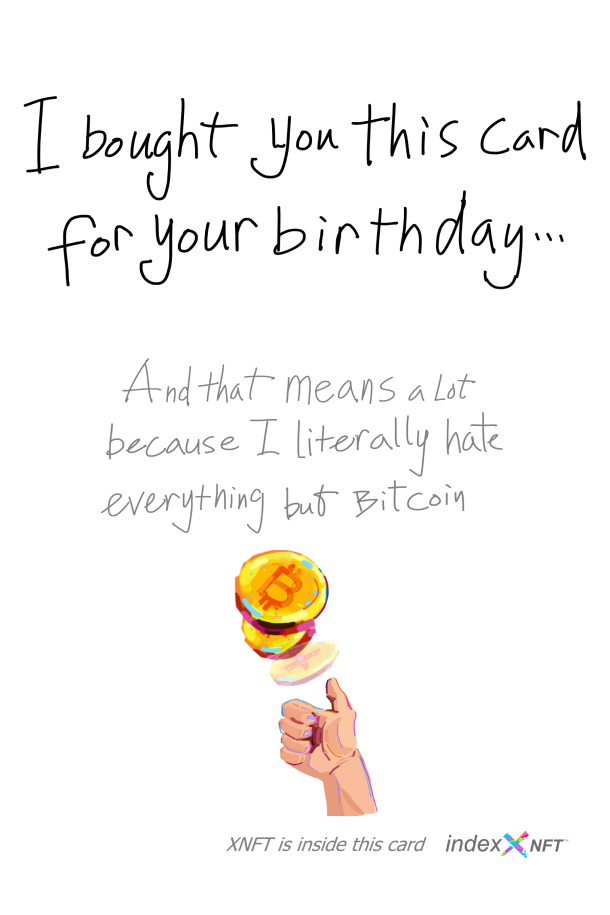 I bought you this card
for your birthday...
And that means a Lot
because I literally hate
everything but Bitcoin
XNFT is inside this card indexX NFT™